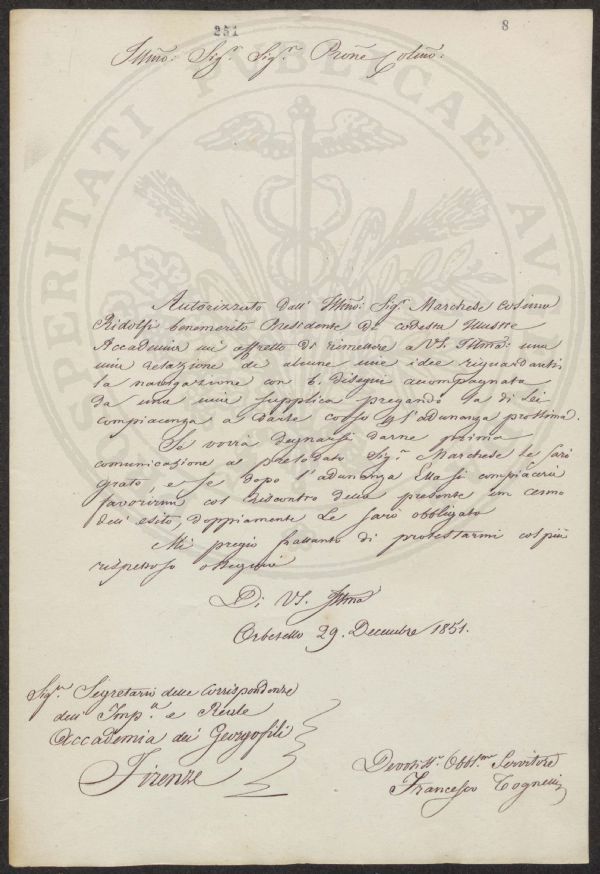 251
8
Illmo: Sigr. Sigr. Prone Colmo:
Autorizzato dall' Illmo: Sigr. Marchese Cosimo
Ridolfi benemerito Presidente di codesta Illustre
Accademia mi affretto di rimettere a VS. Illma: una
mia relazione di alcune mie idee riguardanti
la navigazione con 6. disegni accompagnata
da una mia supplica pregando la di Lei
compiacenza a darle corso all'adunanza prossima.
Se vorrà degnarsi darne prima
comunicazione al prelodato Sigr. Marchese Le sarò
grato, e se dopo l'adunanza Ella si compiacerà
favorirmi col riscontro della presente un cenno
dell' esito, doppiamente Le sarò obbligato
Mi pregio frattanto di protestarmi col più
rispettoso ossequio
Di VS. Illma
Orbetello 29. Decembre 1851.
Sigr. Segretario delle Corrispondenze
dell' Imp. e Reale
Accademia dei Georgofili
Firenze
Devotiss. Obblmo Servitore
Francesco Tognelli
PROSPERITATI PUBLICAE AUG